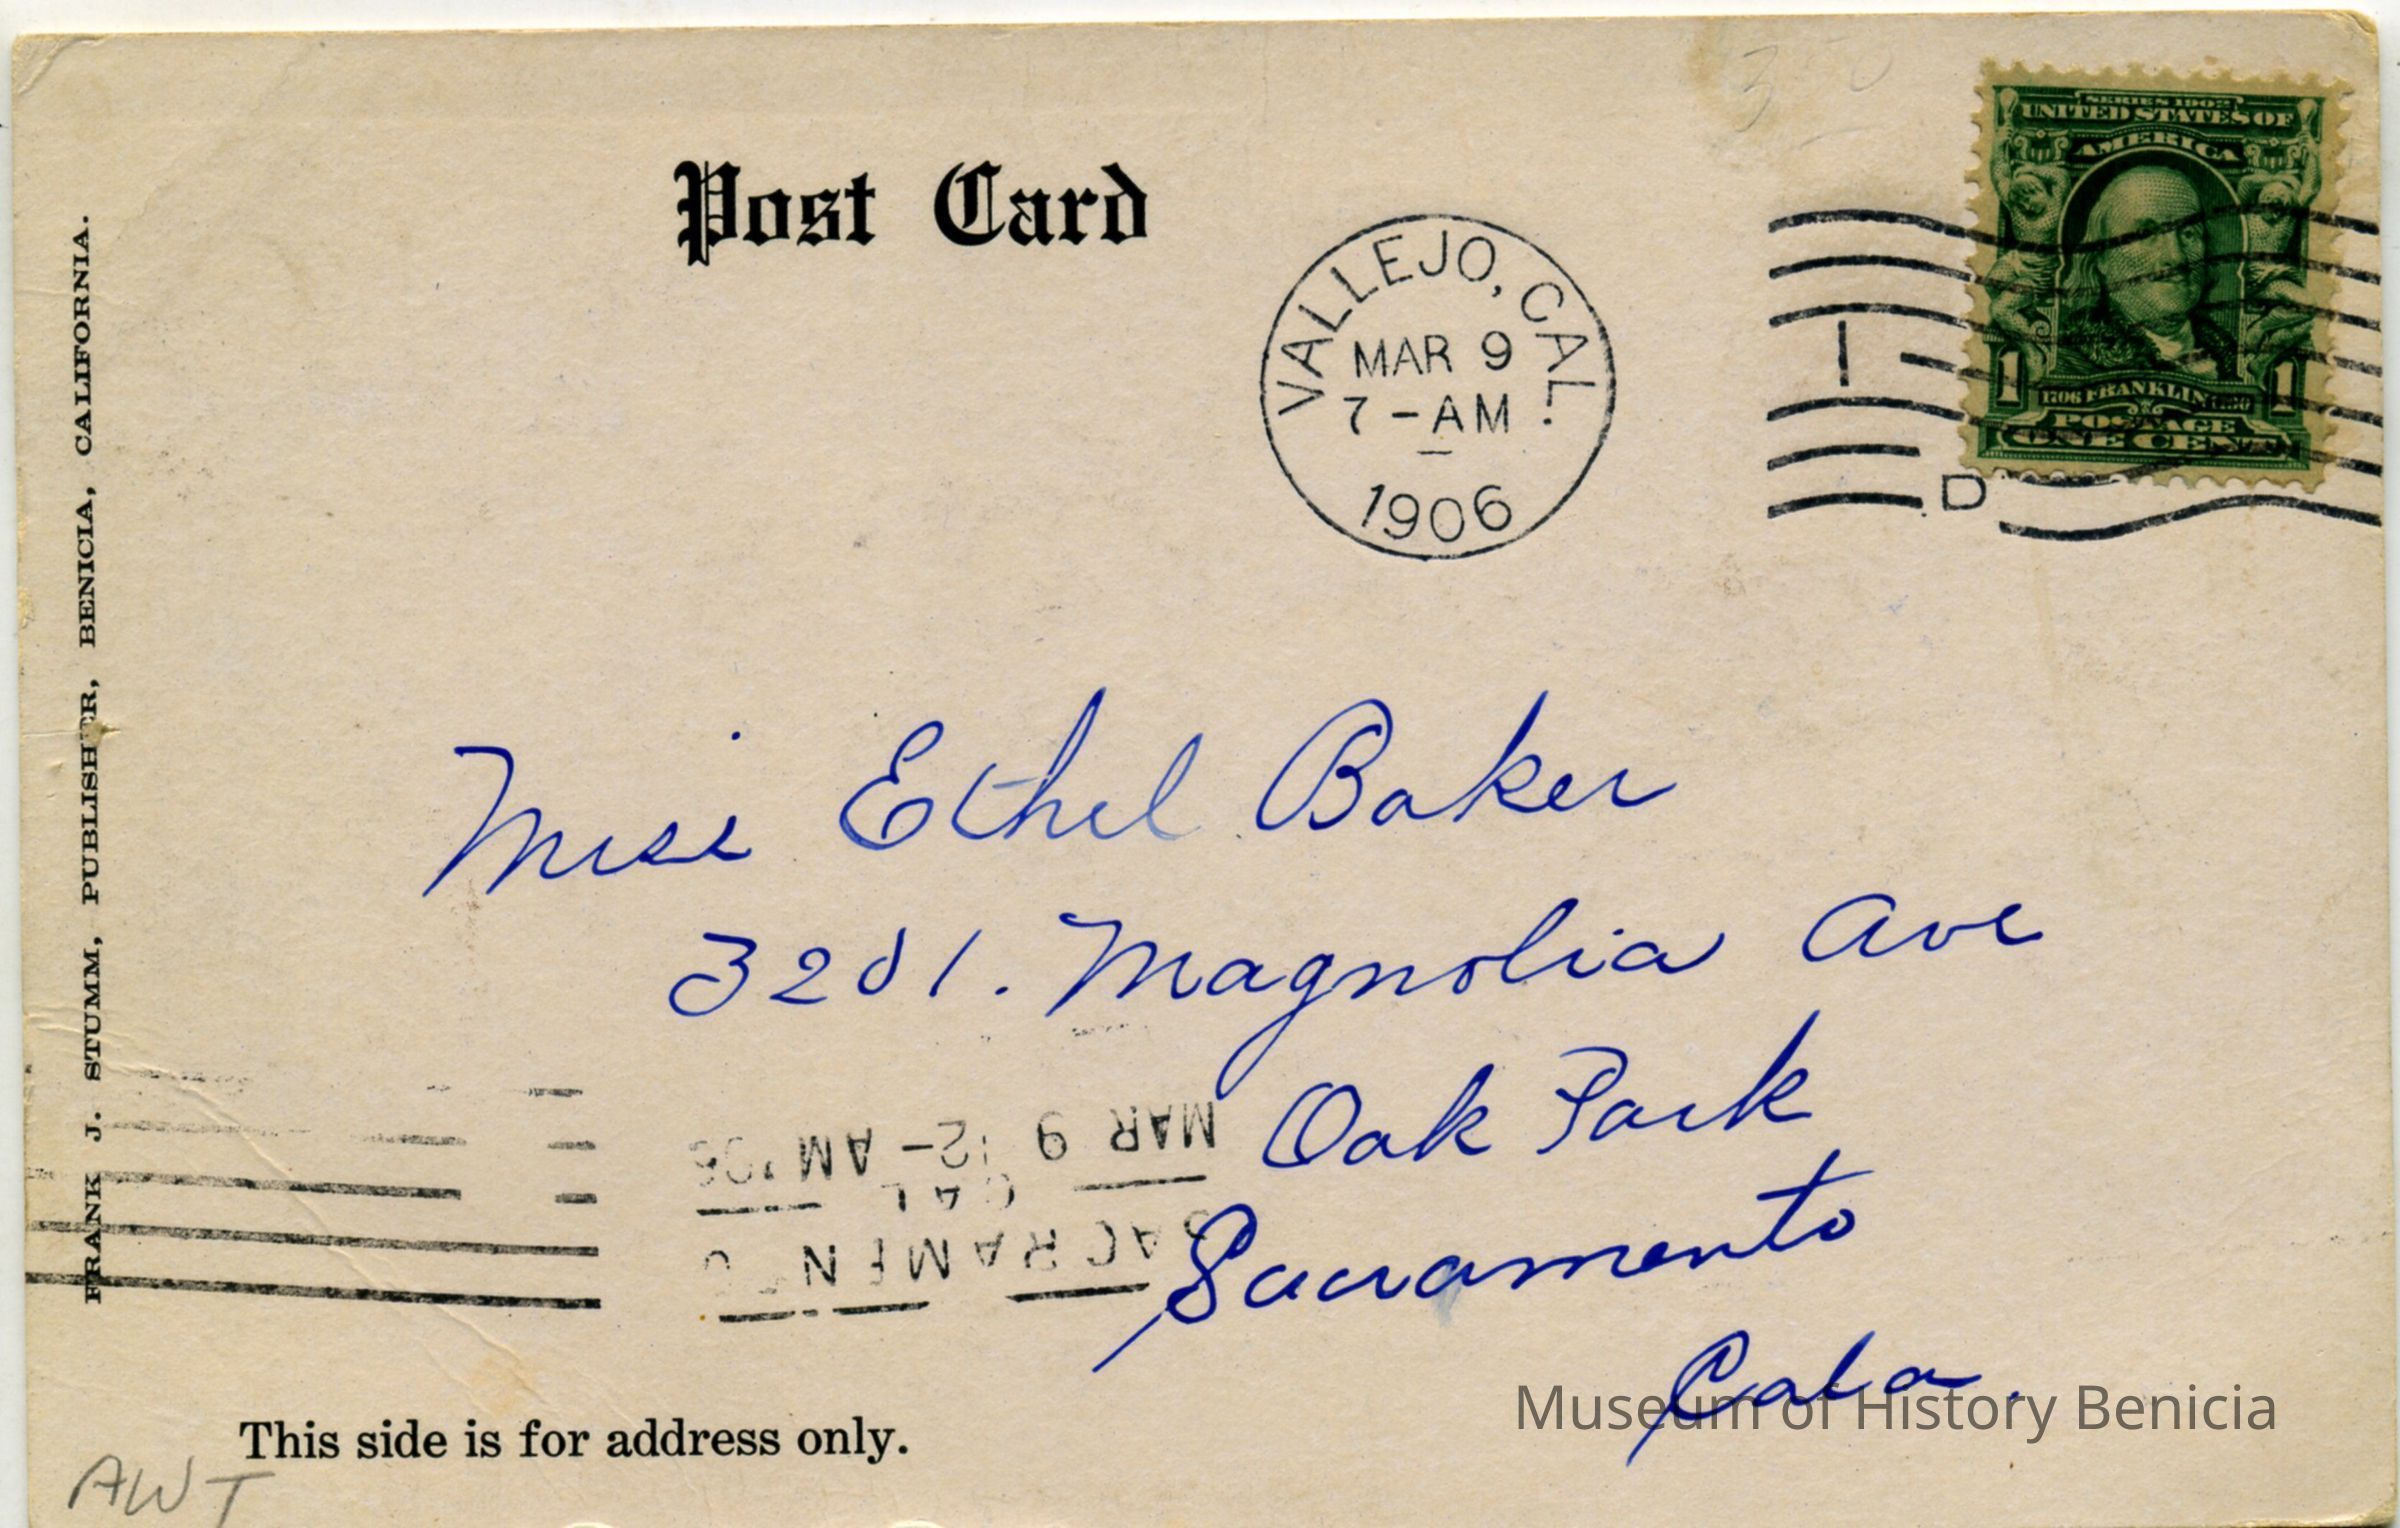 Post Card
VALLEJO, CAL.
MAR 9
7-AM
1906
SERIES 1902
UNITED STATES OF
AMERICA
1 1706 FRANKLIN 1790 1
POSTAGE
ONE CENT
I
D
FRANK J. STUMM, PUBLISHER, BENICIA, CALIFORNIA.
Miss Ethel Baker
3201. Magnolia Ave
Oak Park
Sacramento
Cala.
SACRAMEN
CAL
MAR 9 12-AM '06
This side is for address only.
AWT
Museum of History Benicia